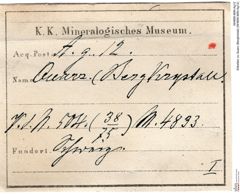 K. K. Mineralogisches Museum.
Acq. Post A. g. 12.
Name Quarz. (Berg Krystall.
V. 1. N. 504. (38/75) M. 4893.
Fundort Schwarz
I